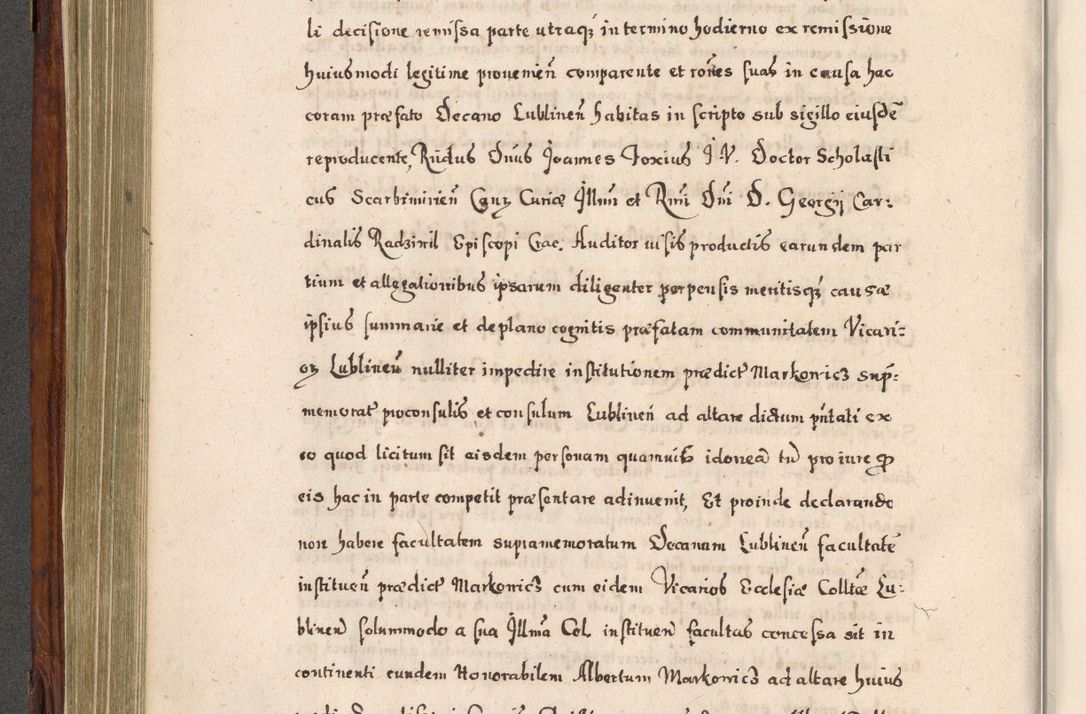 li decisione remissa parte utraqꝫ in termino hodierno ex remissione
huiusmodi legitime provenieñ comparente et rões suas in causa hac
coram præfato Decano Lublineñ habitas in scripto sub sigillo eiusdẽ
reproducente, Rñdus Dñus Joannes Foxius J. V. Doctor Scholasti
cus Scarbimirieñ Cauꝫ Curiæ Jllmi et Rmi Dñi D. Georgij Car⸗
dinalis Radziwil Episcopi Crac. Auditor visis productis earundem par
tium et allegationibus ipsarum diligenter perpensis meritisqꝫ causæ
ipsius summarie et de plano cognitis præfatam communitatem Vicari⸗
oꝝ Lublineñ nulliter impedire institutionem prædict Markowicz sup⸗
memorat proconsulis et consulum Lublineñ ad altare dictum pñtati ex
eo quod licitum sit eisdem personam quamvis idoneã tñ pro iure ꝙ
eis hac in parte competit præsentare adinvenit, Et proinde declarando
non habere facultatem supramemoratum Decanum Lublineñ facultatẽ
institueñ prædict Markowicz cum eidem Vicarios Ecclesiæ Colltæ Lu⸗
blineñ solummodo a sua Jllma Cel. institueñ facultas concessa sit in
continenti eundem Honorabilem Albertum Markowicz ad altare huius